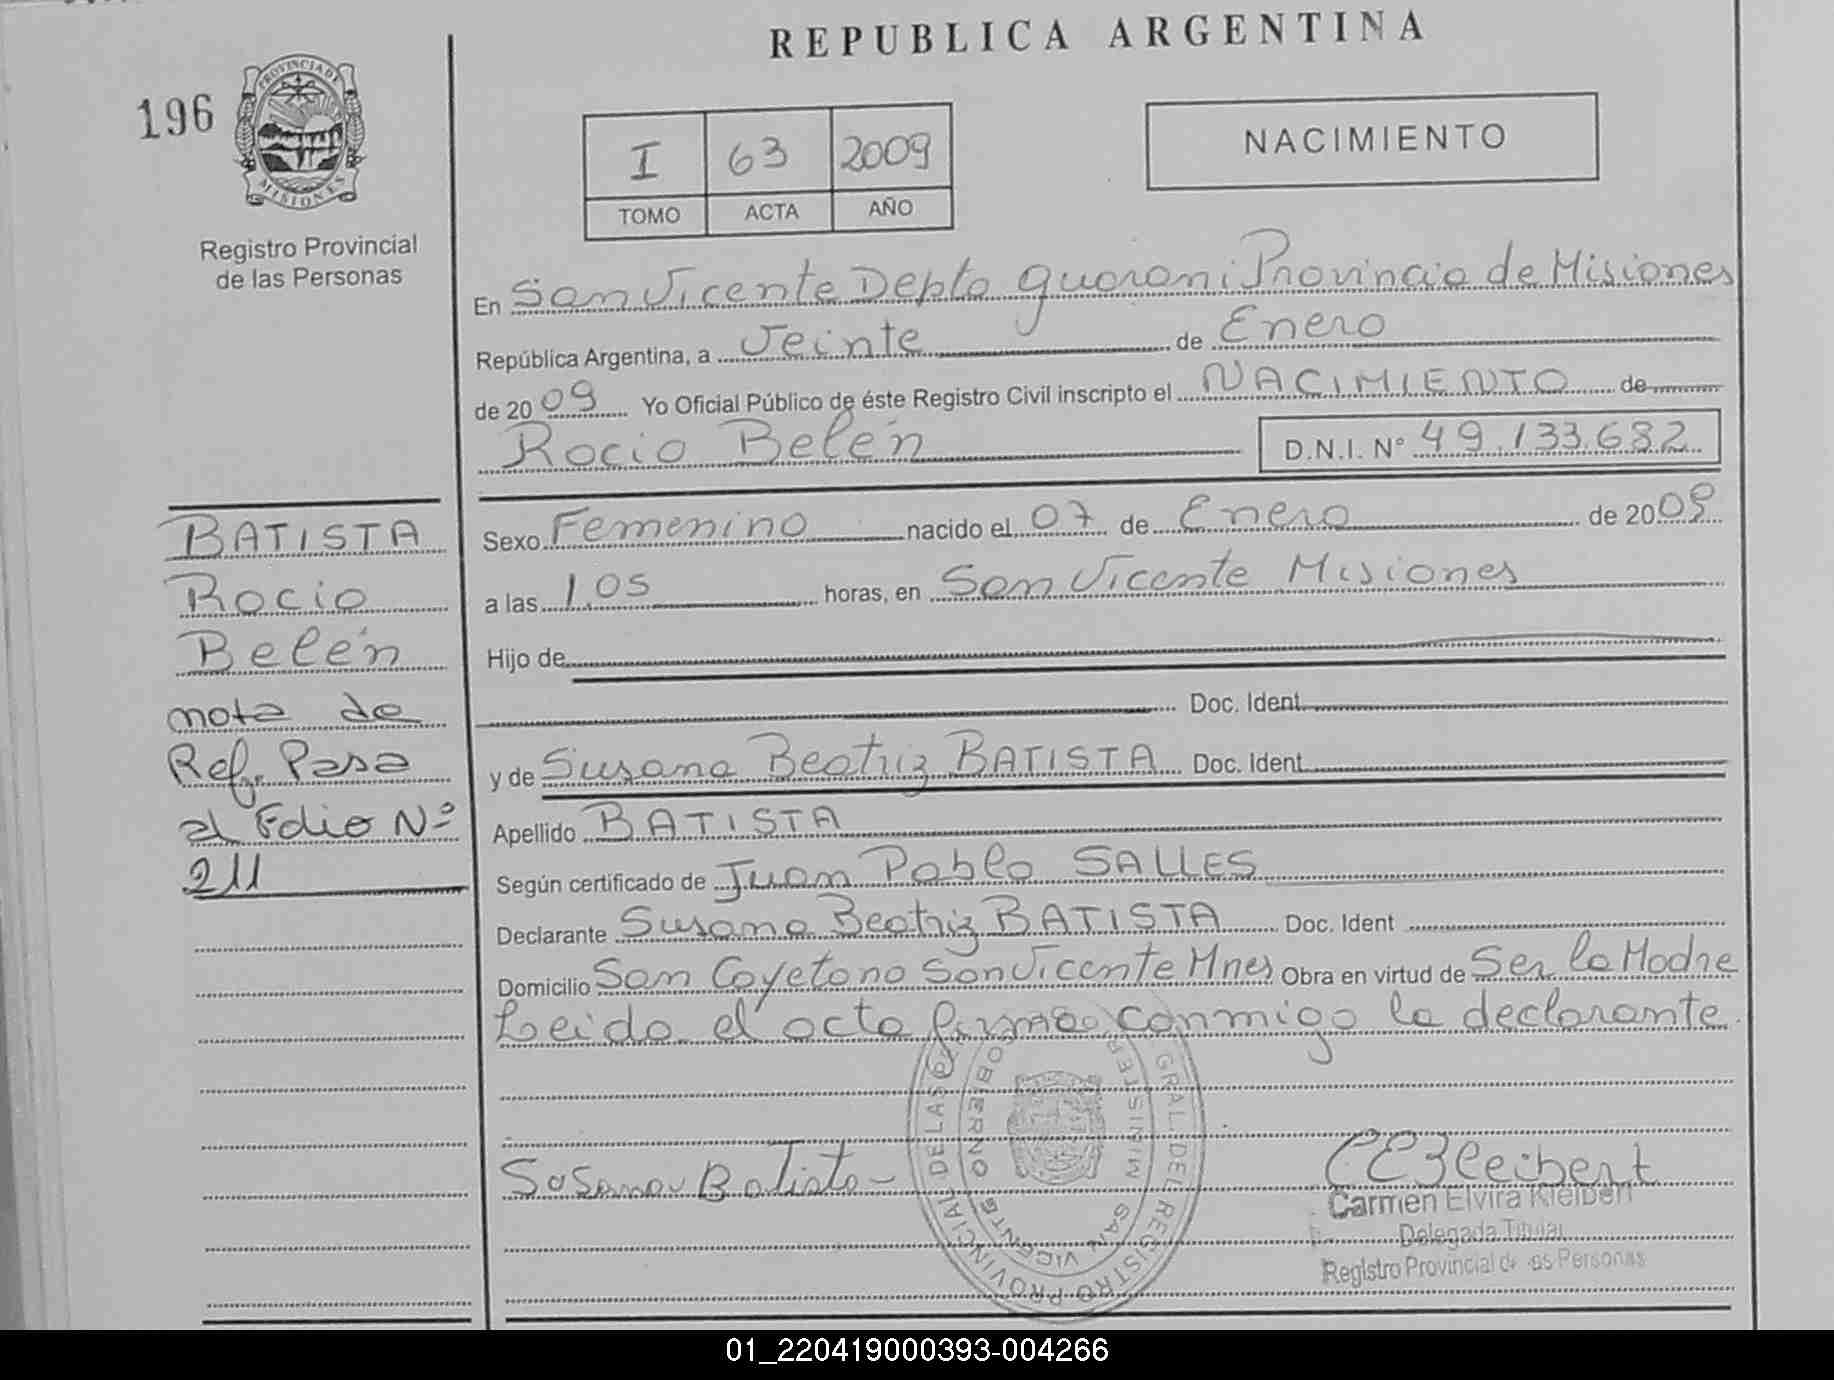 REPUBLICA ARGENTINA
196
PROVINCIA DE
MISIONES
Registro Provincial
de las Personas
I 63 2009
TOMO ACTA AÑO
NACIMIENTO
En San Vicente Depto Guarani Provincia de Misiones
República Argentina, a Veinte de Enero
de 2009 Yo Oficial Público de éste Registro Civil inscripto el NACIMIENTO de
Rocio Belén D.N.I. N° 49.133.682
Sexo Femenino nacido el 07 de Enero de 2009
a las 1.05 horas, en San Vicente Misiones
Hijo de
Doc. Ident.
y de Susana Beatriz BATISTA Doc. Ident.
Apellido BATISTA
Según certificado de Juan Pablo SALLES
Declarante Susana Beatriz BATISTA Doc. Ident
Domicilio San Cayetano San Vicente Mnes Obra en virtud de Ser la Madre
Leida el acta firma conmigo la declarante.
BATISTA
Rocio
Belén
nota de
Ref. Pasa
al Folio Nº
211
GRAL. DEL REGISTRO PROVINCIAL DE LAS
GOBIERNO
SAN VICENTE
Susana Batista
CEKleibert
Carmen Elvira Kleibert
Delegada Titular
Registro Provincial de las Personas
01_220419000393-004266